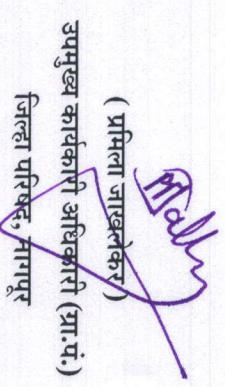 ( प्रमिला जाखलेकर )
उपमुख्य कार्यकारी अधिकारी (प्रा.पं.)
जिल्हा परिषद, नागपूर